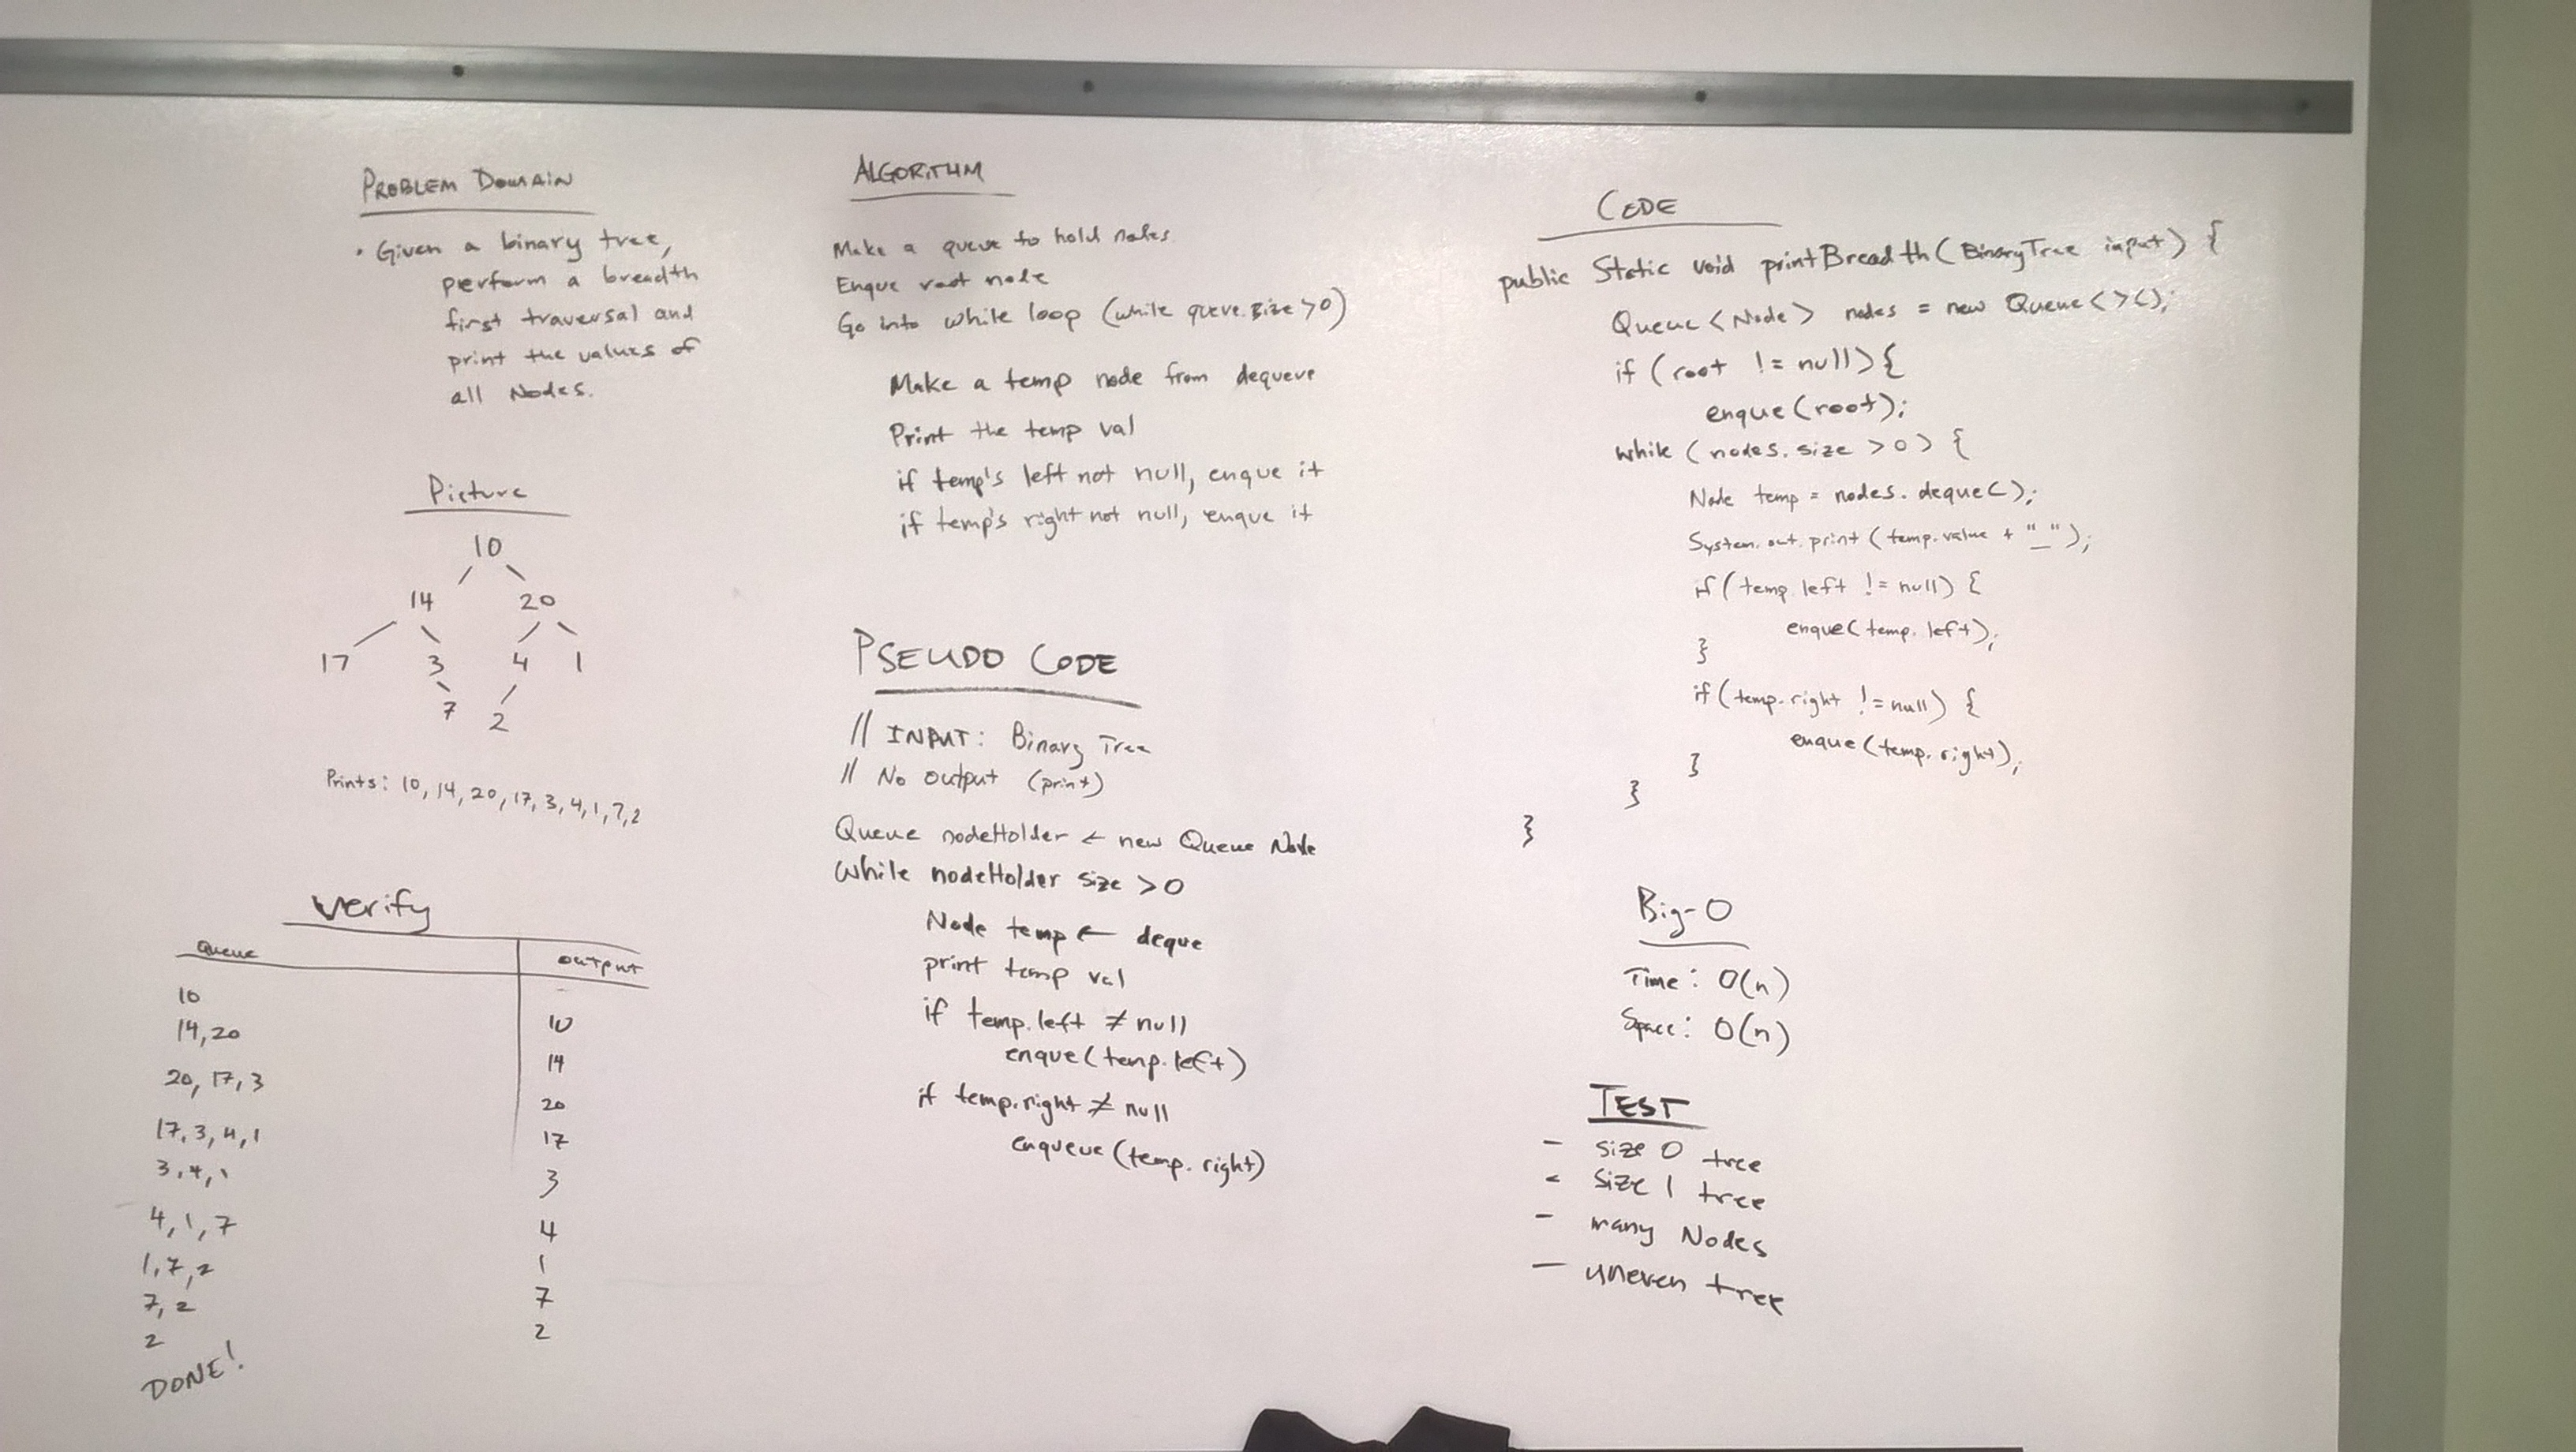 PROBLEM DOMAIN
• Given a binary tree,
perform a breadth
first traversal and
print the values of
all Nodes.
Picture
10
14 20
17 3 4 1
7 2
Prints: 10, 14, 20, 17, 3, 4, 1, 7, 2
Verify
Queue output
10
14, 20 10
20, 17, 3 14
17, 3, 4, 1 20
3, 4, 1 17
4, 1, 7 3
1, 7, 2 4
7, 2 1
2 7
DONE! 2
ALGORITHM
Make a queue to hold nodes
Enque root node
Go into while loop (while queue.size >0)
Make a temp node from dequeue
Print the temp val
if temp's left not null, enque it
if temp's right not null, enque it
PSEUDO CODE
// INPUT: Binary Tree
// No output (print)
Queue nodeHolder ← new Queue Node
While nodeHolder size >0
Node temp ← deque
print temp val
if temp.left ≠ null
enque(temp.left)
if temp.right ≠ null
enqueue(temp.right)
CODE
public Static void printBreadth(BinaryTree input) {
Queue<Node> nodes = new Queue<>();
if (root != null){
enque(root);
while (nodes.size >0) {
Node temp = nodes.deque();
System.out.print(temp.value + "_");
if(temp.left != null) {
enque(temp.left);
}
if(temp.right != null) {
enque(temp.right);
}
}
}
Big-O
Time: O(n)
Space: O(n)
TEST
- size 0 tree
- Size 1 tree
- many Nodes
- uneven tree